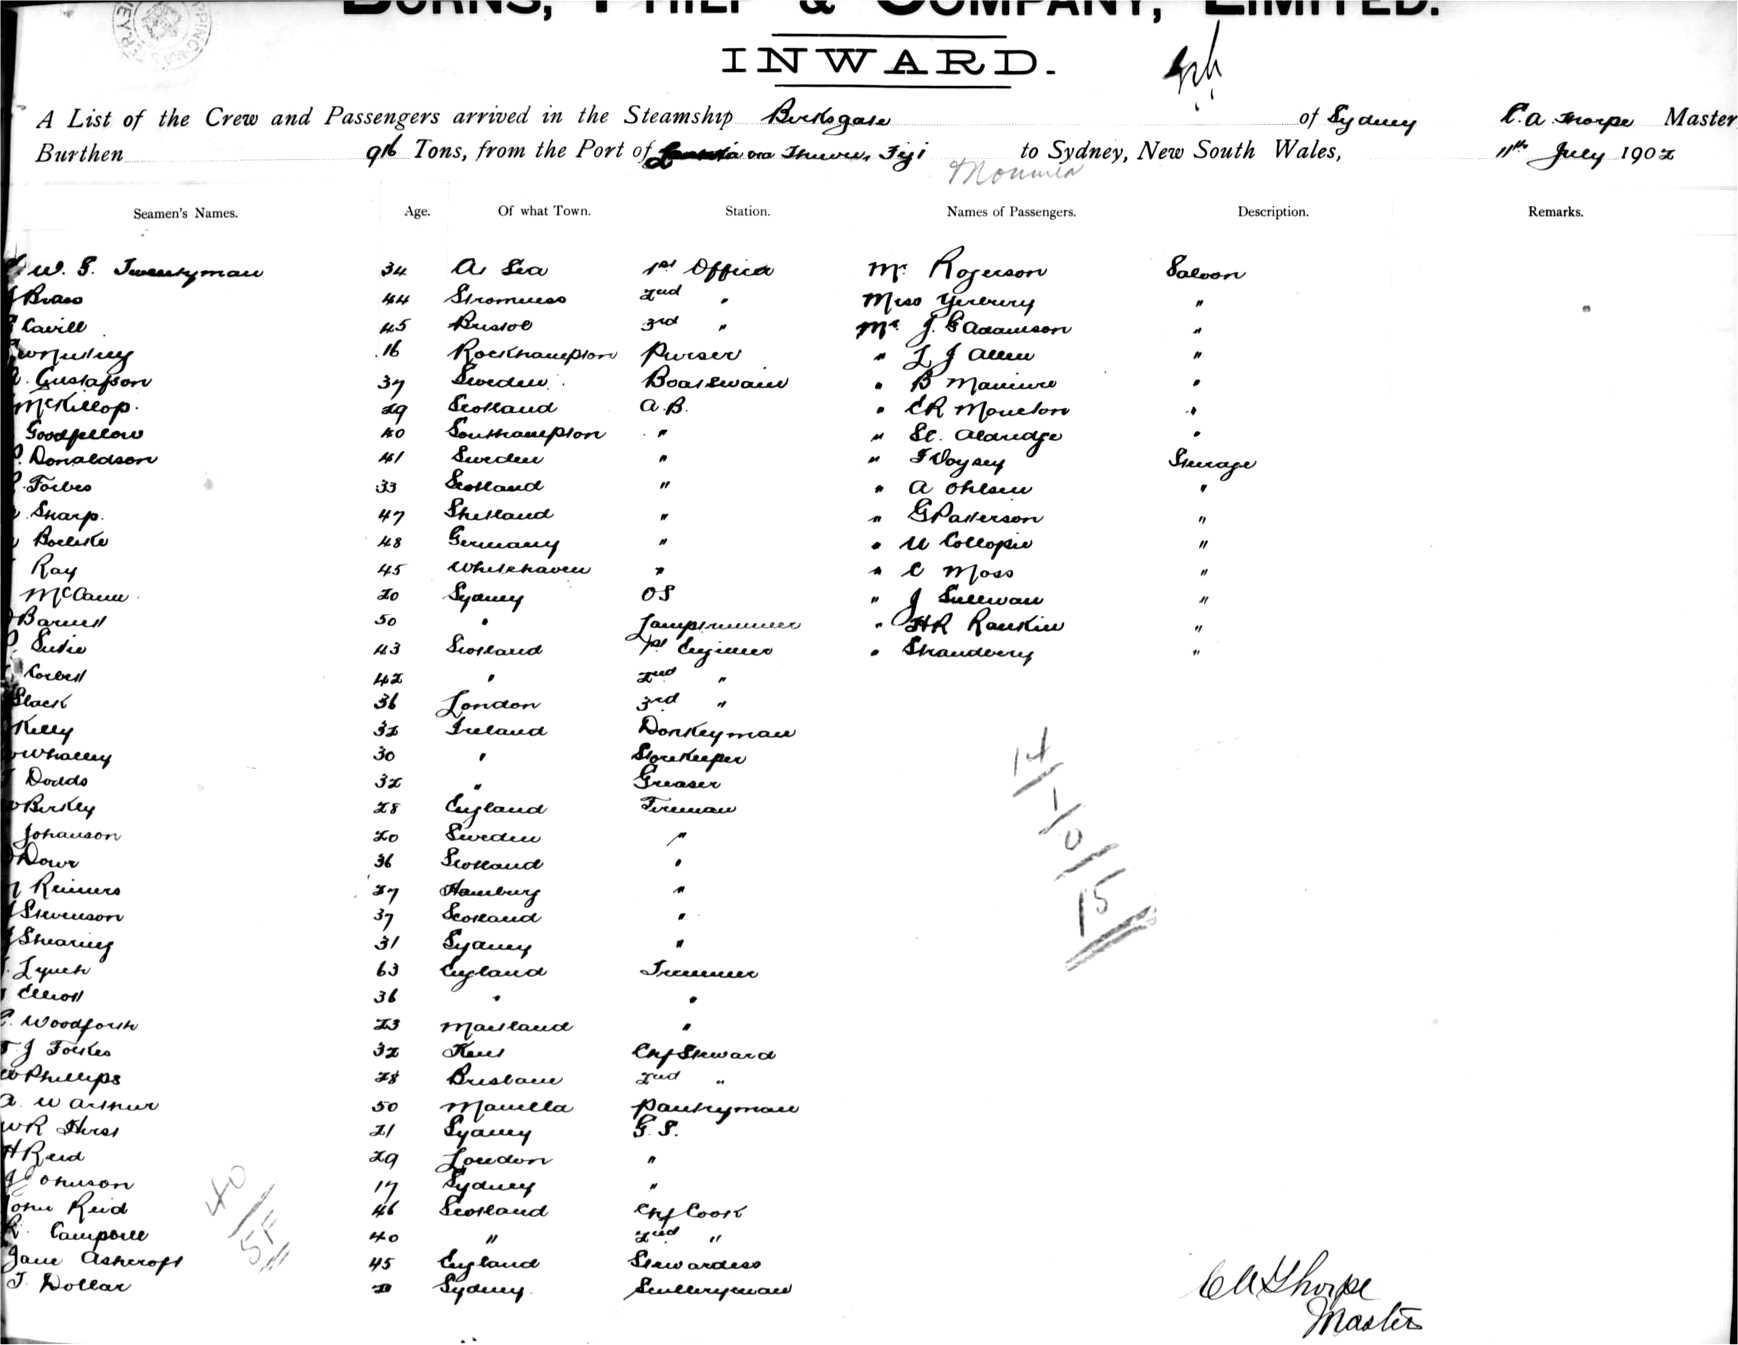 BURNS, PHILP & COMPANY, LIMITED.
INWARD.
A List of the Crew and Passengers arrived in the Steamship Birksgate of Sydney C. A Thorpe Master
Burthen 916 Tons, from the Port of via Fiji to Sydney, New South Wales, 11th July 1902
Seamen's Names. Age. Of what Town. Station. Names of Passengers. Description. Remarks.
W. G. Twentyman 34 At Sea 1st Officer Mr Rogerson Saloon
J Brass 44 Stromness 2nd " Miss Yerbury "
Cavill 45 Bristol 3rd " Mr J. G Adamson "
16 Rockhampton Purser " L J Allen "
Gustafson 37 Sweden Boatswain " B "
McKillop. 29 Scotland A.B. " C R Moneton "
Goodfellow 40 Southampton " " St. Aldridge "
Donaldson 41 Sweden " " F Voysey Steerage
Forbes 33 Scotland " " A Ohlsen "
Sharp. 47 Shetland " " G Patterson "
48 Germany " " "
Ray 45 Whitehaven " " C Moss "
McCann 20 Sydney OS " J Sullivan "
Barnett 50 " Lamptrimmer " HR Rankin "
43 Scotland 1st Engineer " Strandberg "
Corbett 42 " 2nd "
Slack 36 London 3rd "
Kelly 32 Ireland Donkeyman
Whalley 30 " Storekeeper
Dodds 32 " Greaser
28 England Fireman
Johanson 20 Sweden "
36 Scotland "
Reimers 27 Hamburg "
J Stevenson 37 Scotland "
J Shearing 31 Sydney "
Lynch 63 England Trimmer
Elliott 36 " "
C. Woodforth 23 Maitland "
T. J Folkes 32 Kent Chf Steward
W Phillips 28 Brisbane 2nd "
A. W Arthur 50 Manilla Pantryman
W R Hirst 21 Sydney G. S.
H Reid 29 London "
J Johnson 17 Sydney "
John Reid 46 Scotland Chf Cook
R. Campbell 40 " 2nd "
Jane Ashcroft 45 England Stewardess
T. Dollar Sydney. Sculleryman
14
10
15
40
C A Thorpe
Master